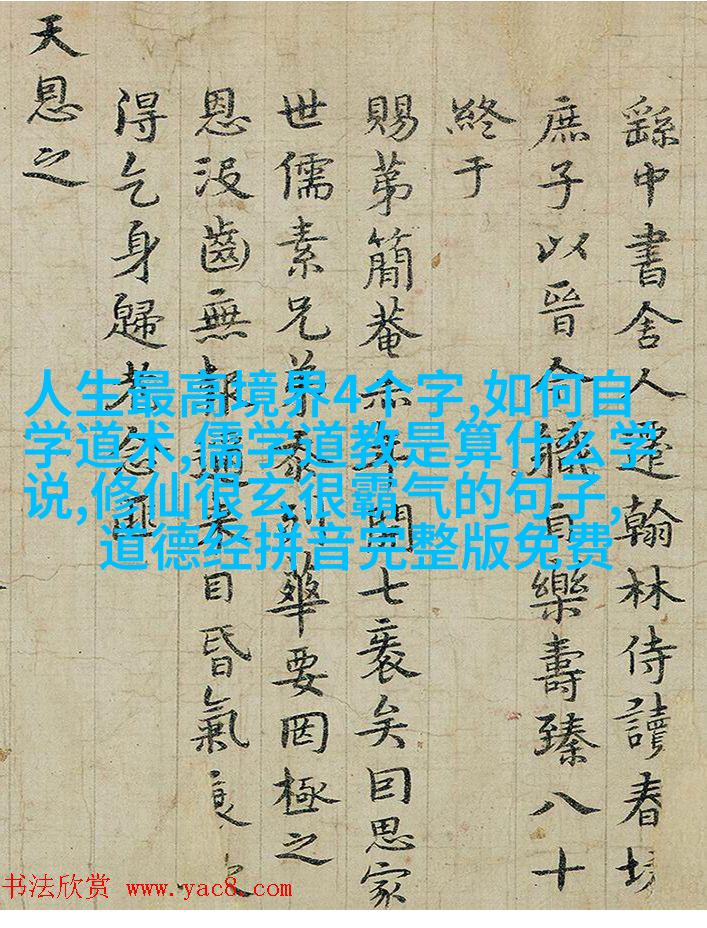 繇中書舍人遷翰林侍讀春坊
庶子以晉今自樂壽臻八十
終于
賜苐簡菴亦年開七袠矣囙思家
世儒素兄弟忝列華要罔極之
恩沒齒無報邇来目昏氣衰
得乞身歸老念
天恩之
人生最高境界4个字,如何自
学道术,儒学道教是算什么学
说,修仙很玄很霸气的句子,
道德经拼音完整版免费
书法欣赏 www.yac8.com